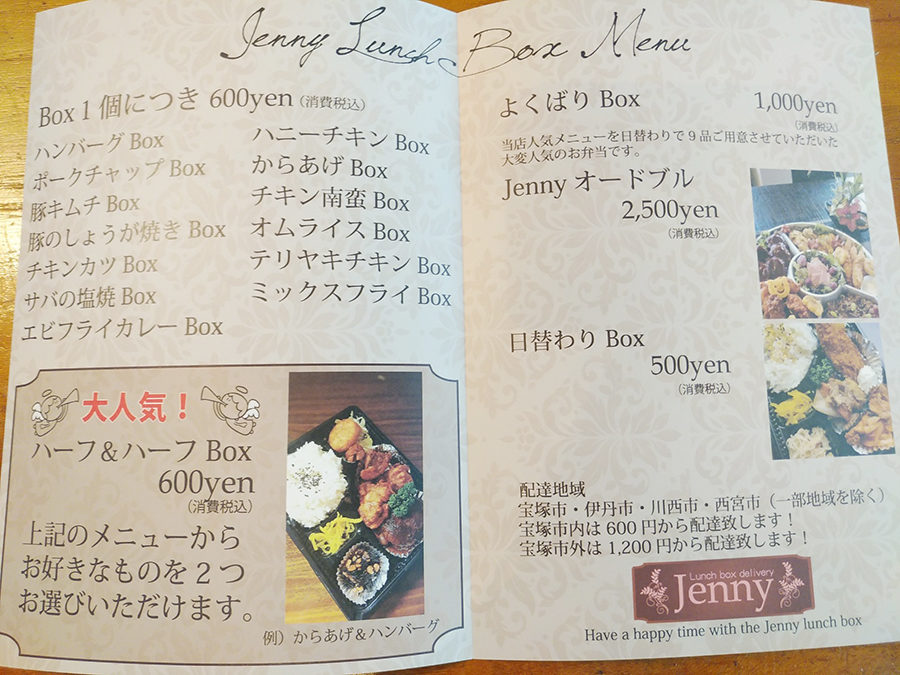 Jenny Lunch Box Menu
Box 1個につき 600yen (消費税込)
ハンバーグ Box
ポークチャップ Box
豚キムチ Box
豚のしょうが焼き Box
チキンカツ Box
サバの塩焼 Box
エビフライカレー Box
ハニーチキン Box
からあげ Box
チキン南蛮 Box
オムライス Box
テリヤキチキン Box
ミックスフライ Box
大人気！
ハーフ＆ハーフ Box
600yen
(消費税込)
上記のメニューから
お好きなものを２つ
お選びいただけます。
例）からあげ＆ハンバーグ
よくばり Box 1,000yen
(消費税込)
当店人気メニューを日替わりで９品ご用意させていただいた
大変人気のお弁当です。
Jenny オードブル
2,500yen
(消費税込)
日替わり Box
500yen
(消費税込)
配達地域
宝塚市・伊丹市・川西市・西宮市（一部地域を除く）
宝塚市内は 600 円から配達致します！
宝塚市外は 1,200 円から配達致します！
Lunch box delivery
Jenny
Have a happy time with the Jenny lunch box